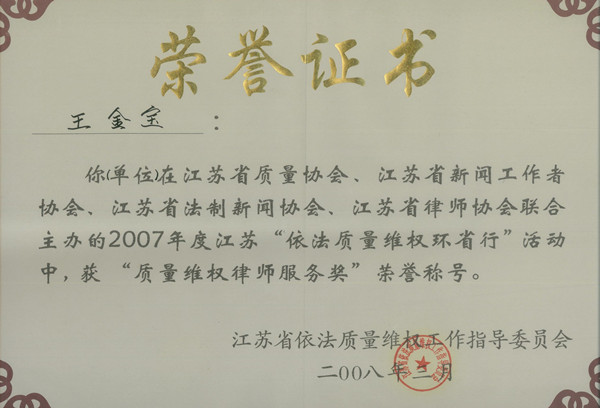 荣誉证书
王金宝：
你(单位)在江苏省质量协会、江苏省新闻工作者
协会、江苏省法制新闻协会、江苏省律师协会联合
主办的2007年度江苏“依法质量维权环省行”活动
中，获“质量维权律师服务奖”荣誉称号。
江苏省依法质量维权工作指导委员会
二00八年三月